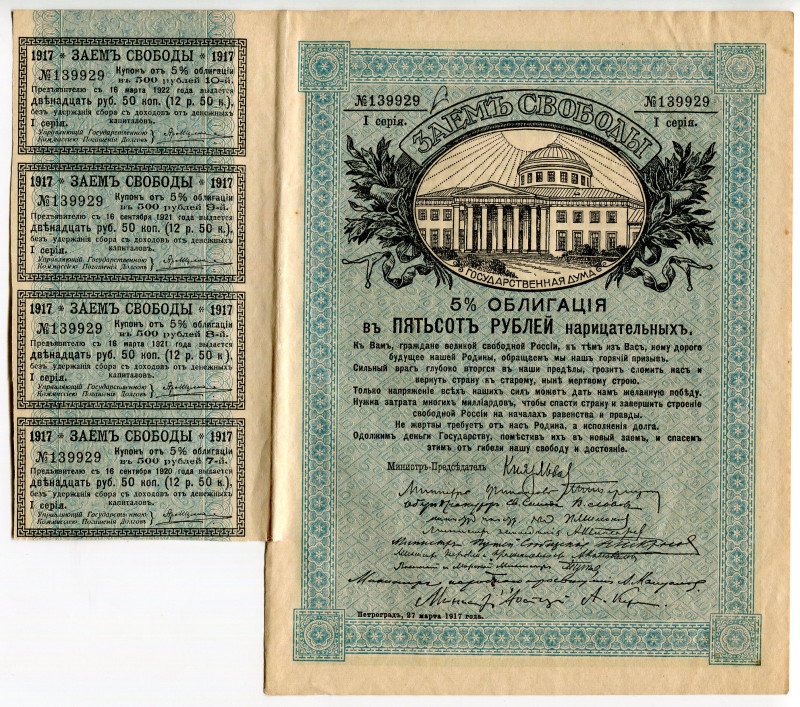 1917 * ЗАЕМЪ СВОБОДЫ * 1917
№139929 Купонъ отъ 5% облигаціи
въ 500 рублей 10-й.
Предъявителю съ 16 марта 1922 года выдается
двѣнадцать руб. 50 коп. (12 р. 50 к.),
безъ удержанія сбора съ доходовъ отъ денежныхъ
I серія. капиталовъ.
Управляющій Государственною
Коммиссіею Погашенія Долговъ
1917 * ЗАЕМЪ СВОБОДЫ * 1917
№139929 Купонъ отъ 5% облигаціи
въ 500 рублей 9-й.
Предъявителю съ 16 сентября 1921 года выдается
двѣнадцать руб. 50 коп. (12 р. 50 к.),
безъ удержанія сбора съ доходовъ отъ денежныхъ
I серія. капиталовъ.
Управляющій Государственною
Коммиссіею Погашенія Долговъ
1917 * ЗАЕМЪ СВОБОДЫ * 1917
№139929 Купонъ отъ 5% облигаціи
въ 500 рублей 8-й.
Предъявителю съ 16 марта 1921 года выдается
двѣнадцать руб. 50 коп. (12 р. 50 к.),
безъ удержанія сбора съ доходовъ отъ денежныхъ
I серія. капиталовъ.
Управляющій Государственною
Коммиссіею Погашенія Долговъ
1917 * ЗАЕМЪ СВОБОДЫ * 1917
№139929 Купонъ отъ 5% облигаціи
въ 500 рублей 7-й.
Предъявителю съ 16 сентября 1920 года выдается
двѣнадцать руб. 50 коп. (12 р. 50 к.),
безъ удержанія сбора съ доходовъ отъ денежныхъ
I серія. капиталовъ.
Управляющій Государственною
Коммиссіею Погашенія Долговъ
№139929 №139929
I серія. I серія.
ЗАЕМЪ СВОБОДЫ
ГОСУДАРСТВЕННАЯ ДУМА
5% ОБЛИГАЦІЯ
въ ПЯТЬСОТЪ РУБЛЕЙ нарицательныхъ.
Къ Вамъ, граждане великой свободной Россіи, къ тѣмъ изъ Васъ, кому дорого
будущее нашей Родины, обращаемъ мы нашъ горячій призывъ.
Сильный врагъ глубоко вторгся въ наши предѣлы, грозитъ сломить насъ и
вернуть страну къ старому, нынѣ мертвому строю.
Только напряженіе всѣхъ нашихъ силъ можетъ дать намъ желанную побѣду.
Нужна затрата многихъ милліардовъ, чтобы спасти страну и завершить строеніе
свободной Россіи на началахъ равенства и правды.
Не жертвы требуетъ отъ насъ Родина, а исполненія долга.
Одолжимъ деньги Государству, помѣстивъ ихъ въ новый заемъ, и спасемъ
этимъ отъ гибели нашу свободу и достояніе.
Министръ-Предсѣдатель Князь Львов
Министръ Финансовъ
Оберъ Прокуроръ Св. Синода В. Львовъ
П. Милюковъ
Министръ земледѣлія А. Шингаревъ
Министръ Путей Сообщенія Н. Некрасовъ
Министръ Торговли и Промышленности А. Коноваловъ
Военный и Морской Министръ А. Гучковъ
Министръ народнаго просвѣщенія А. Мануиловъ
Министръ Юстиціи А. Керенскій
Петроградъ, 27 марта 1917 года.